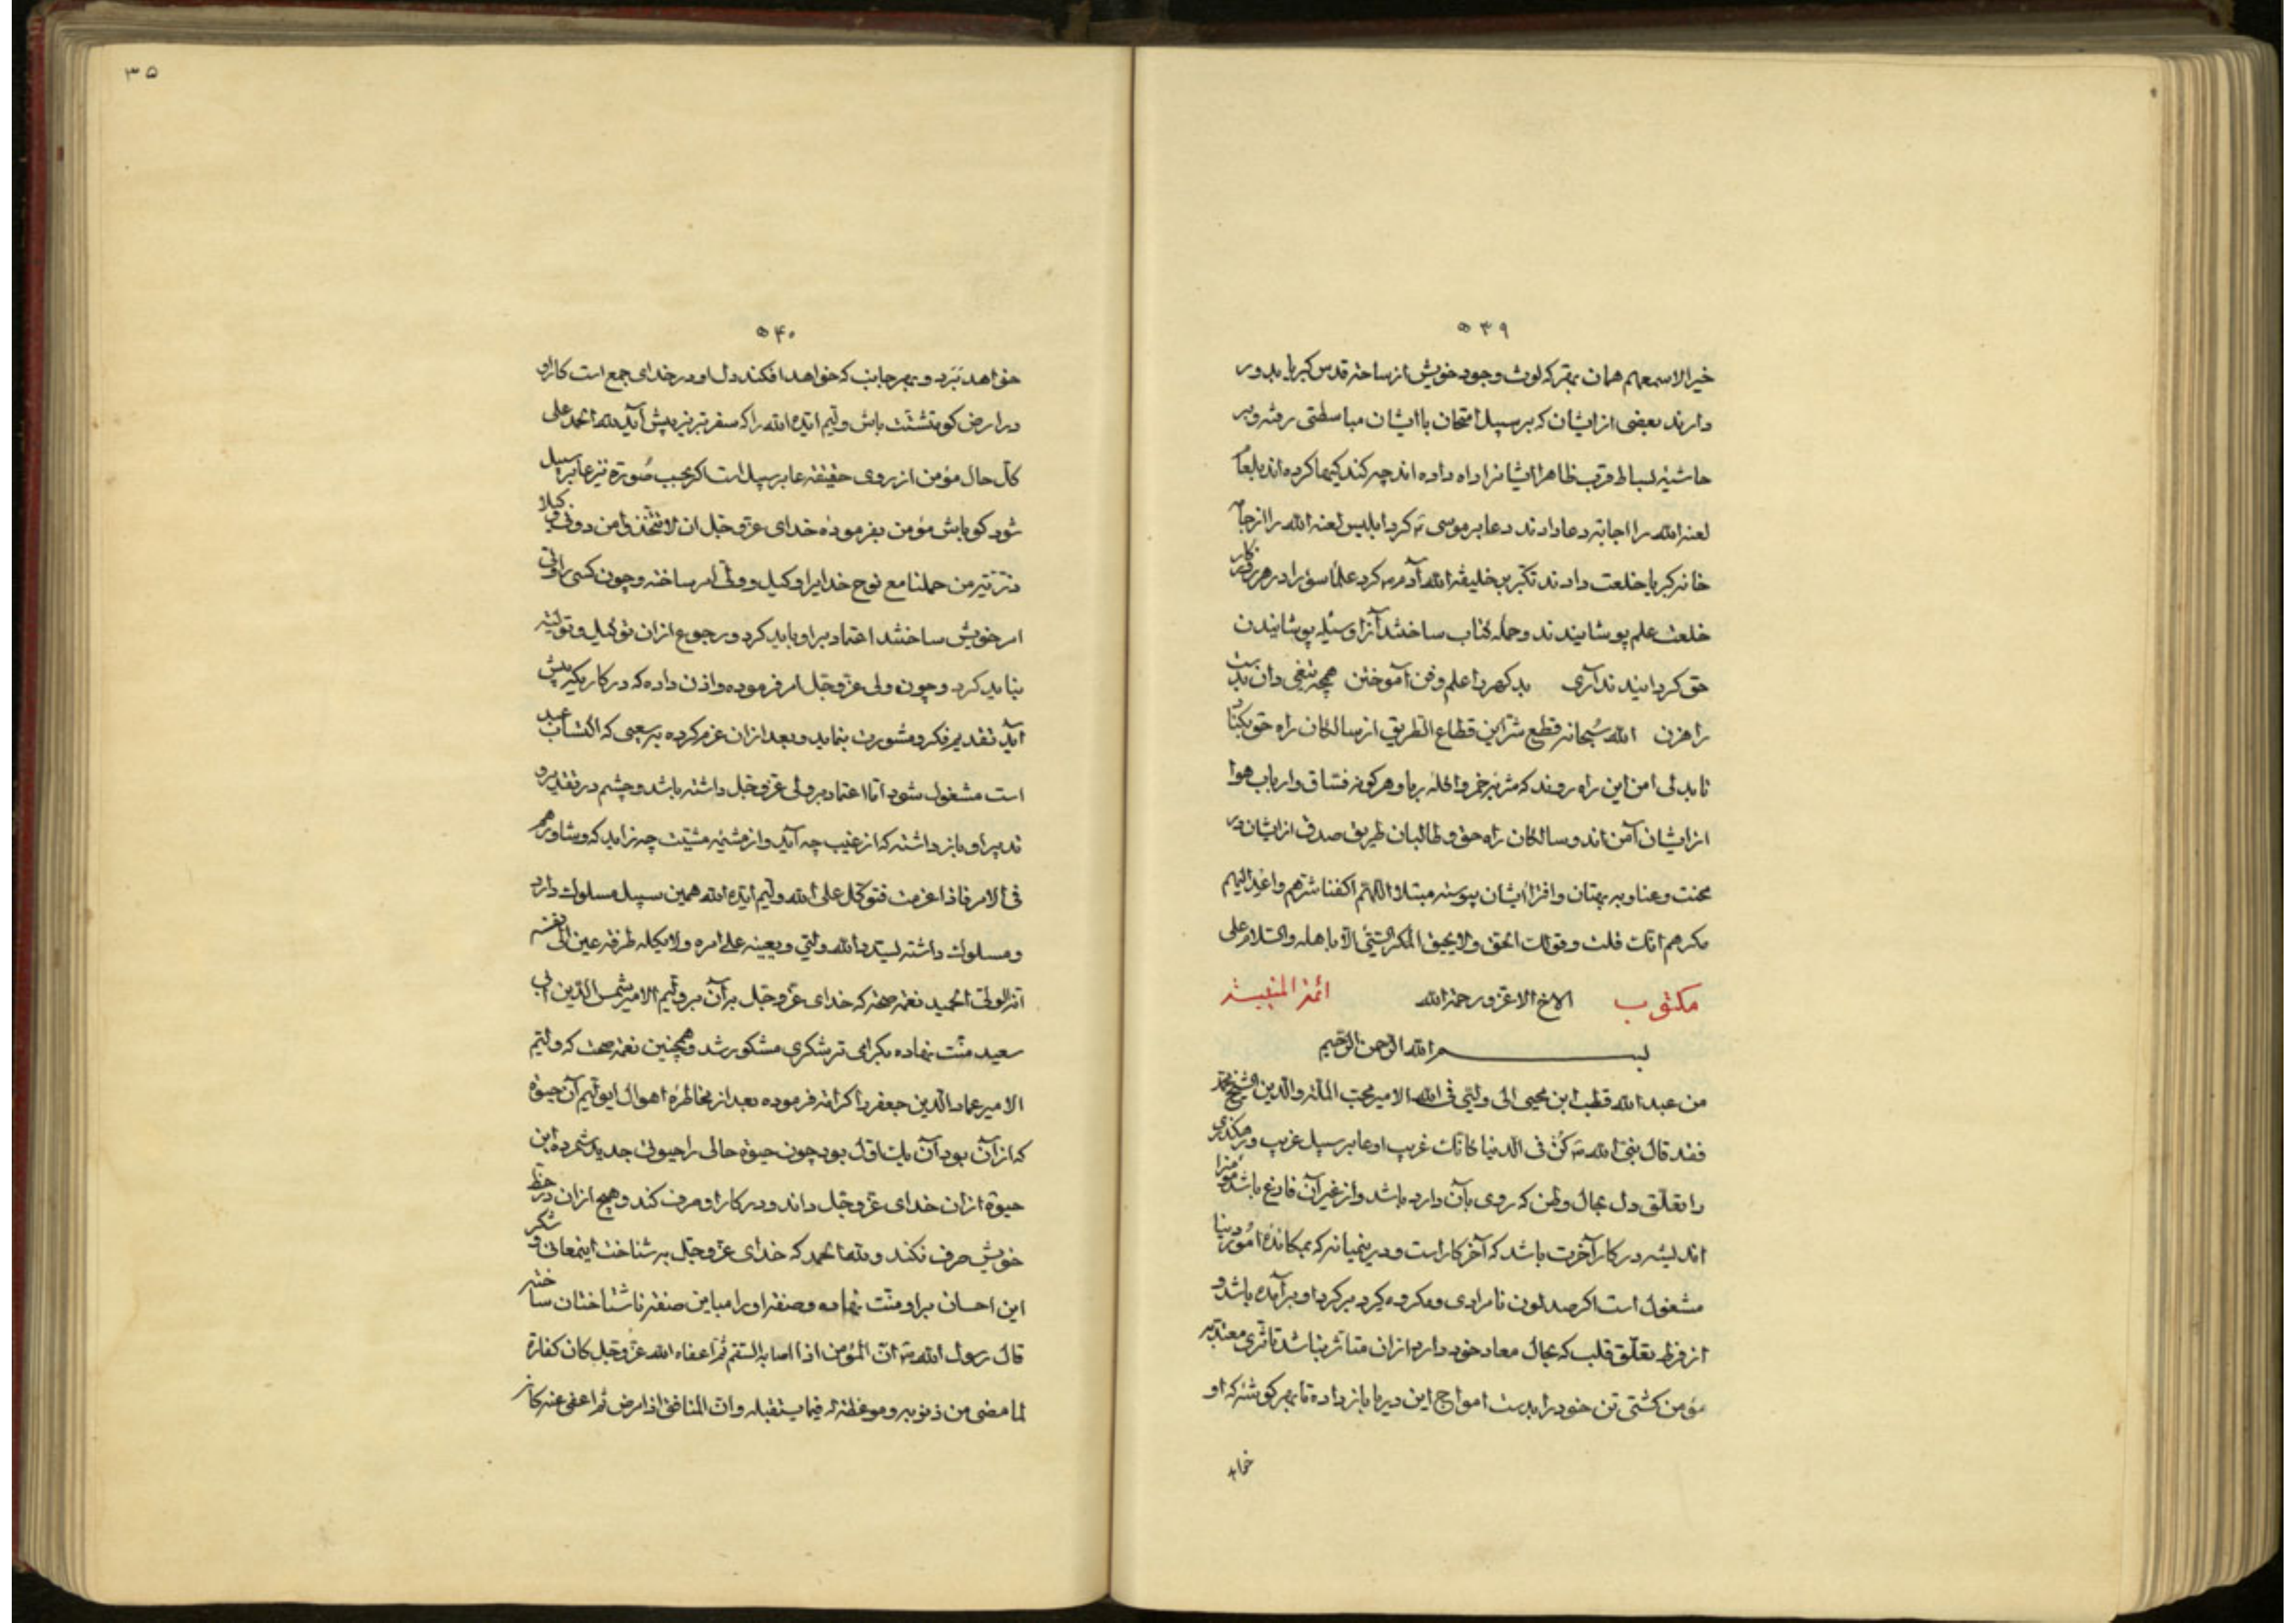 ۵۳۹
خیرا لاسمعهم همان بهتر که لوث وجود خویش از ساحه قدس کبریا بدور
دارند بعضی از ایشان که بر سبیل امتحان با ایشان مباسطتی رفته و بر
حاشیه بساط قرب ظاهرا ایشانرا راه داده اند چه کند کیها کرده اند بلعام
لعنه الله را اجابة دعا دادند دعا بر موسی ع کرد ابلیس لعنه الله را از جامه
خانه کبریا خلعت دادند تکبر بر خلیفة الله آدم ع کرد علماء سوء را در هر
خلعت علم پوشانیدند و حمله کتاب ساختند آنرا وسیله پوشانیدن
حق کردانیدند آری بد کهر را علم و فن آموختن همچه تیغی دان بدست
راهزن الله سبحانه قطع شر این قطاع الطریق از سالکان راه حق بکناد
تا بدلی امن این راه روند که شربه خمر و اکله ربا و هر کونه فساق و ارباب هوا
از ایشان آمن اند و سالکان راه حق و طالبان طریق صدق از ایشان در
محنت و عنا و به بهتان و افترا ایشان پیوسته مبتلا اللهم اکفنا شرهم و اعذ الیهم
مکرهم انک قلت و قولک الحق ولا یحیق المکر السیئ الا باهله والسلام علی
مکتوب الاخ الاعز و رحمة الله
بسم الله الرحمن الرحیم
من عبد الله قطب ابن محیی الی ولیی فی الله الامیر محب الملة والدین الشیخ محمد
فقد قال نبی الله ص کن فی الدنیا کانک غریب او عابر سبیل غریب و
را تعلق دل بحال وطن که روی بآن دارد باشد و از غیر آن فارغ باشد
اندیشه در کار آخرت باشد که آخر کار است و درینمیانه که بمکانده امور دنیا
مشغول است اکر صد لون نامرادی و مکروه کرد بر کرد او بر آمده باشد و
از فرط تعلق قلب که بحال معاد خود دارد از ان متاثر نباشد تاثری معتد به
مؤمن کشتی تن خود را بدست امواج این دریا باز داده تا بهر کوشه که او
خواهد
۳۵
۵۴۰
خواهد برد و بهر جانب که خواهد افکند دل او در خدای جمع است کار او
در ارض کو متشتت باش ولیم ایده الله را که سفر تبریز پیش آید لله الحمد علی
کل حال مؤمن از روی حقیقة عابر سبیل است اکر بحسب صورة نیز عابر سبیل
شود کو باش مؤمن بفرموده خدای عز و جل ان لا تتخذوا من دونی وکیلا
ذریة من حملنا مع نوح خدایرا وکیل و ولی امر ساخته و چون کسی را ولی
امر خویش ساختند اعتماد بر او باید کرد و رجوع از ان توکیل و تولیة
نباید کرد و چون ولی عز و جل امر فرموده و اذن داده که در کاریکه پیش
آید تقدیم فکر و مشورت بنماید و بعد از ان عزم کرده بر سعیی که اکتساب عبد
است مشغول شود اما اعتماد بر ولی عز و جل داشته باشد و چشم در تقدیر و
تدبیر او باز داشته که از غیب چه آید و از مشیه مشیت چه زاید که و شاورهم
فی الامر فاذا عزمت فتوکل علی الله ولیم ایده الله همین سبیل مسلوک دارد
و مسلوک داشته یسدد الله ولیی و یعینه علی امره ولا یکله طرفة عین الی نفسه
انه الولی الحمید نعمة صحة که خدای عز و جل بر آن بر ولیم الامیر شمس الدین ابی
سعید منت نهاده بکرامی تر شکری مشکور شد و همچنین نعمة صحت که ولیم
الامیر عماد الدین جعفر را کرامة فرموده بعد از مخاطره اهوال ایولیم آن حیوة
که از آن بود آن بابت اول بود چون حیوة حالی را حیوتی جدید شمرد این
حیوة از ان خدای عز و جل داند و در کار او صرف کند و هیچ از ان در حظ
خویش صرف نکند و لله الحمد که خدای عز و جل بر شناخت اینمعانی و شکر
این احسان بر او منت نهاده و صفة او را مباین صفة ناشناختان ساخته
قال رسول الله ص ان المؤمن اذا اصابه السقم ثم اعفاه الله عز و جل کان کفارة
لما مضی من ذنوبه و موعظة له فیما یستقبله وان المنافق اذا مرض ثم اعفی عنه کان